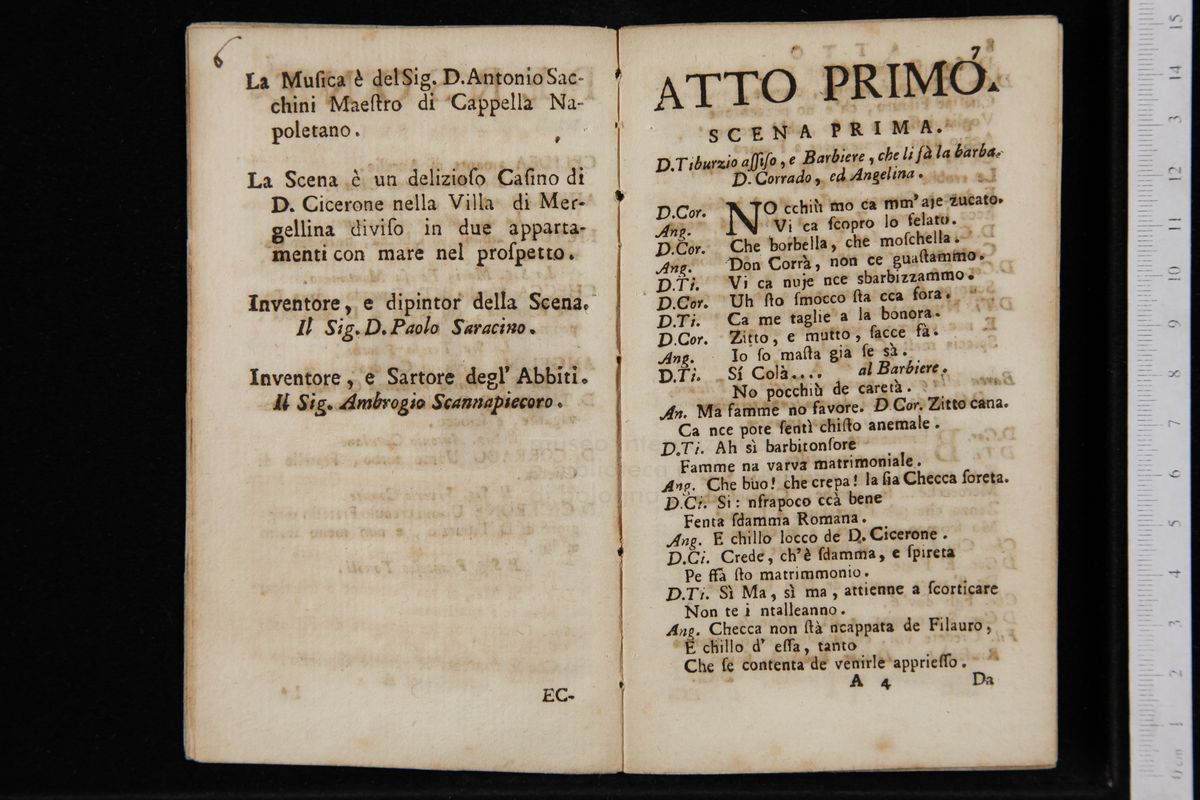 6
La Muſica è del Sig. D. Antonio Sac-
chini Maeſtro di Cappella Na-
poletano.
La Scena è un delizioſo Caſino di
D. Cicerone nella Villa di Mer-
gellina diviſo in due apparta-
menti con mare nel proſpetto.
Inventore, e dipintor della Scena.
Il Sig. D. Paolo Saracino.
Inventore, e Sartore degl' Abbiti.
Il Sig. Ambrogio Scannapiecoro.
EC-
7
ATTO PRIMO.
SCENA PRIMA.
D. Tiburzio aſſiſo, e Barbiere, che li fà la barba.
D. Corrado, ed Angelina.
D.Cor. NO cchiù mo ca mm'aje zucato.
Ang. Vi ca ſcopro lo ſelato.
D.Cor. Che borbella, che moſchella.
Ang. Don Corrà, non ce guaſtammo.
D.Ti. Vi ca nuje nce sbarbizzammo.
D.Cor. Uh ſto ſmocco ſta cca fora.
D.Ti. Ca me taglie a la bonora.
D.Cor. Zitto, e mutto, ſacce fà.
Ang. Io ſo maſta già ſe sà.
D.Ti. Sí Colà.... al Barbiere.
No pocchiù de caretà.
An. Ma famme no favore. D Cor. Zitto cana.
Ca nce pote ſentì chiſto anemale.
D.Ti. Ah sì barbitonſore
Famme na varva matrimoniale.
Ang. Che buo! che crepa! la ſia Checca ſoreta.
D.Ci. Si: nfrapoco ccà bene
Fenta ſdamma Romana.
Ang. E chillo locco de D. Cicerone.
D.Ci. Crede, ch'è ſdamma, e ſpireta
Pe ffà ſto matrimmonio.
D.Ti. Sì Ma, sì ma, attienne a ſcorticare
Non te i ntalleanno.
Ang. Checca non ſtà ncappata de Filauro,
E chillo d' eſſa, tanto
Che ſe contenta de venirle apprieſſo.
A 4 Da
15
14
13
12
11
10
9
8
7
6
5
4
3
2
1
0 cm